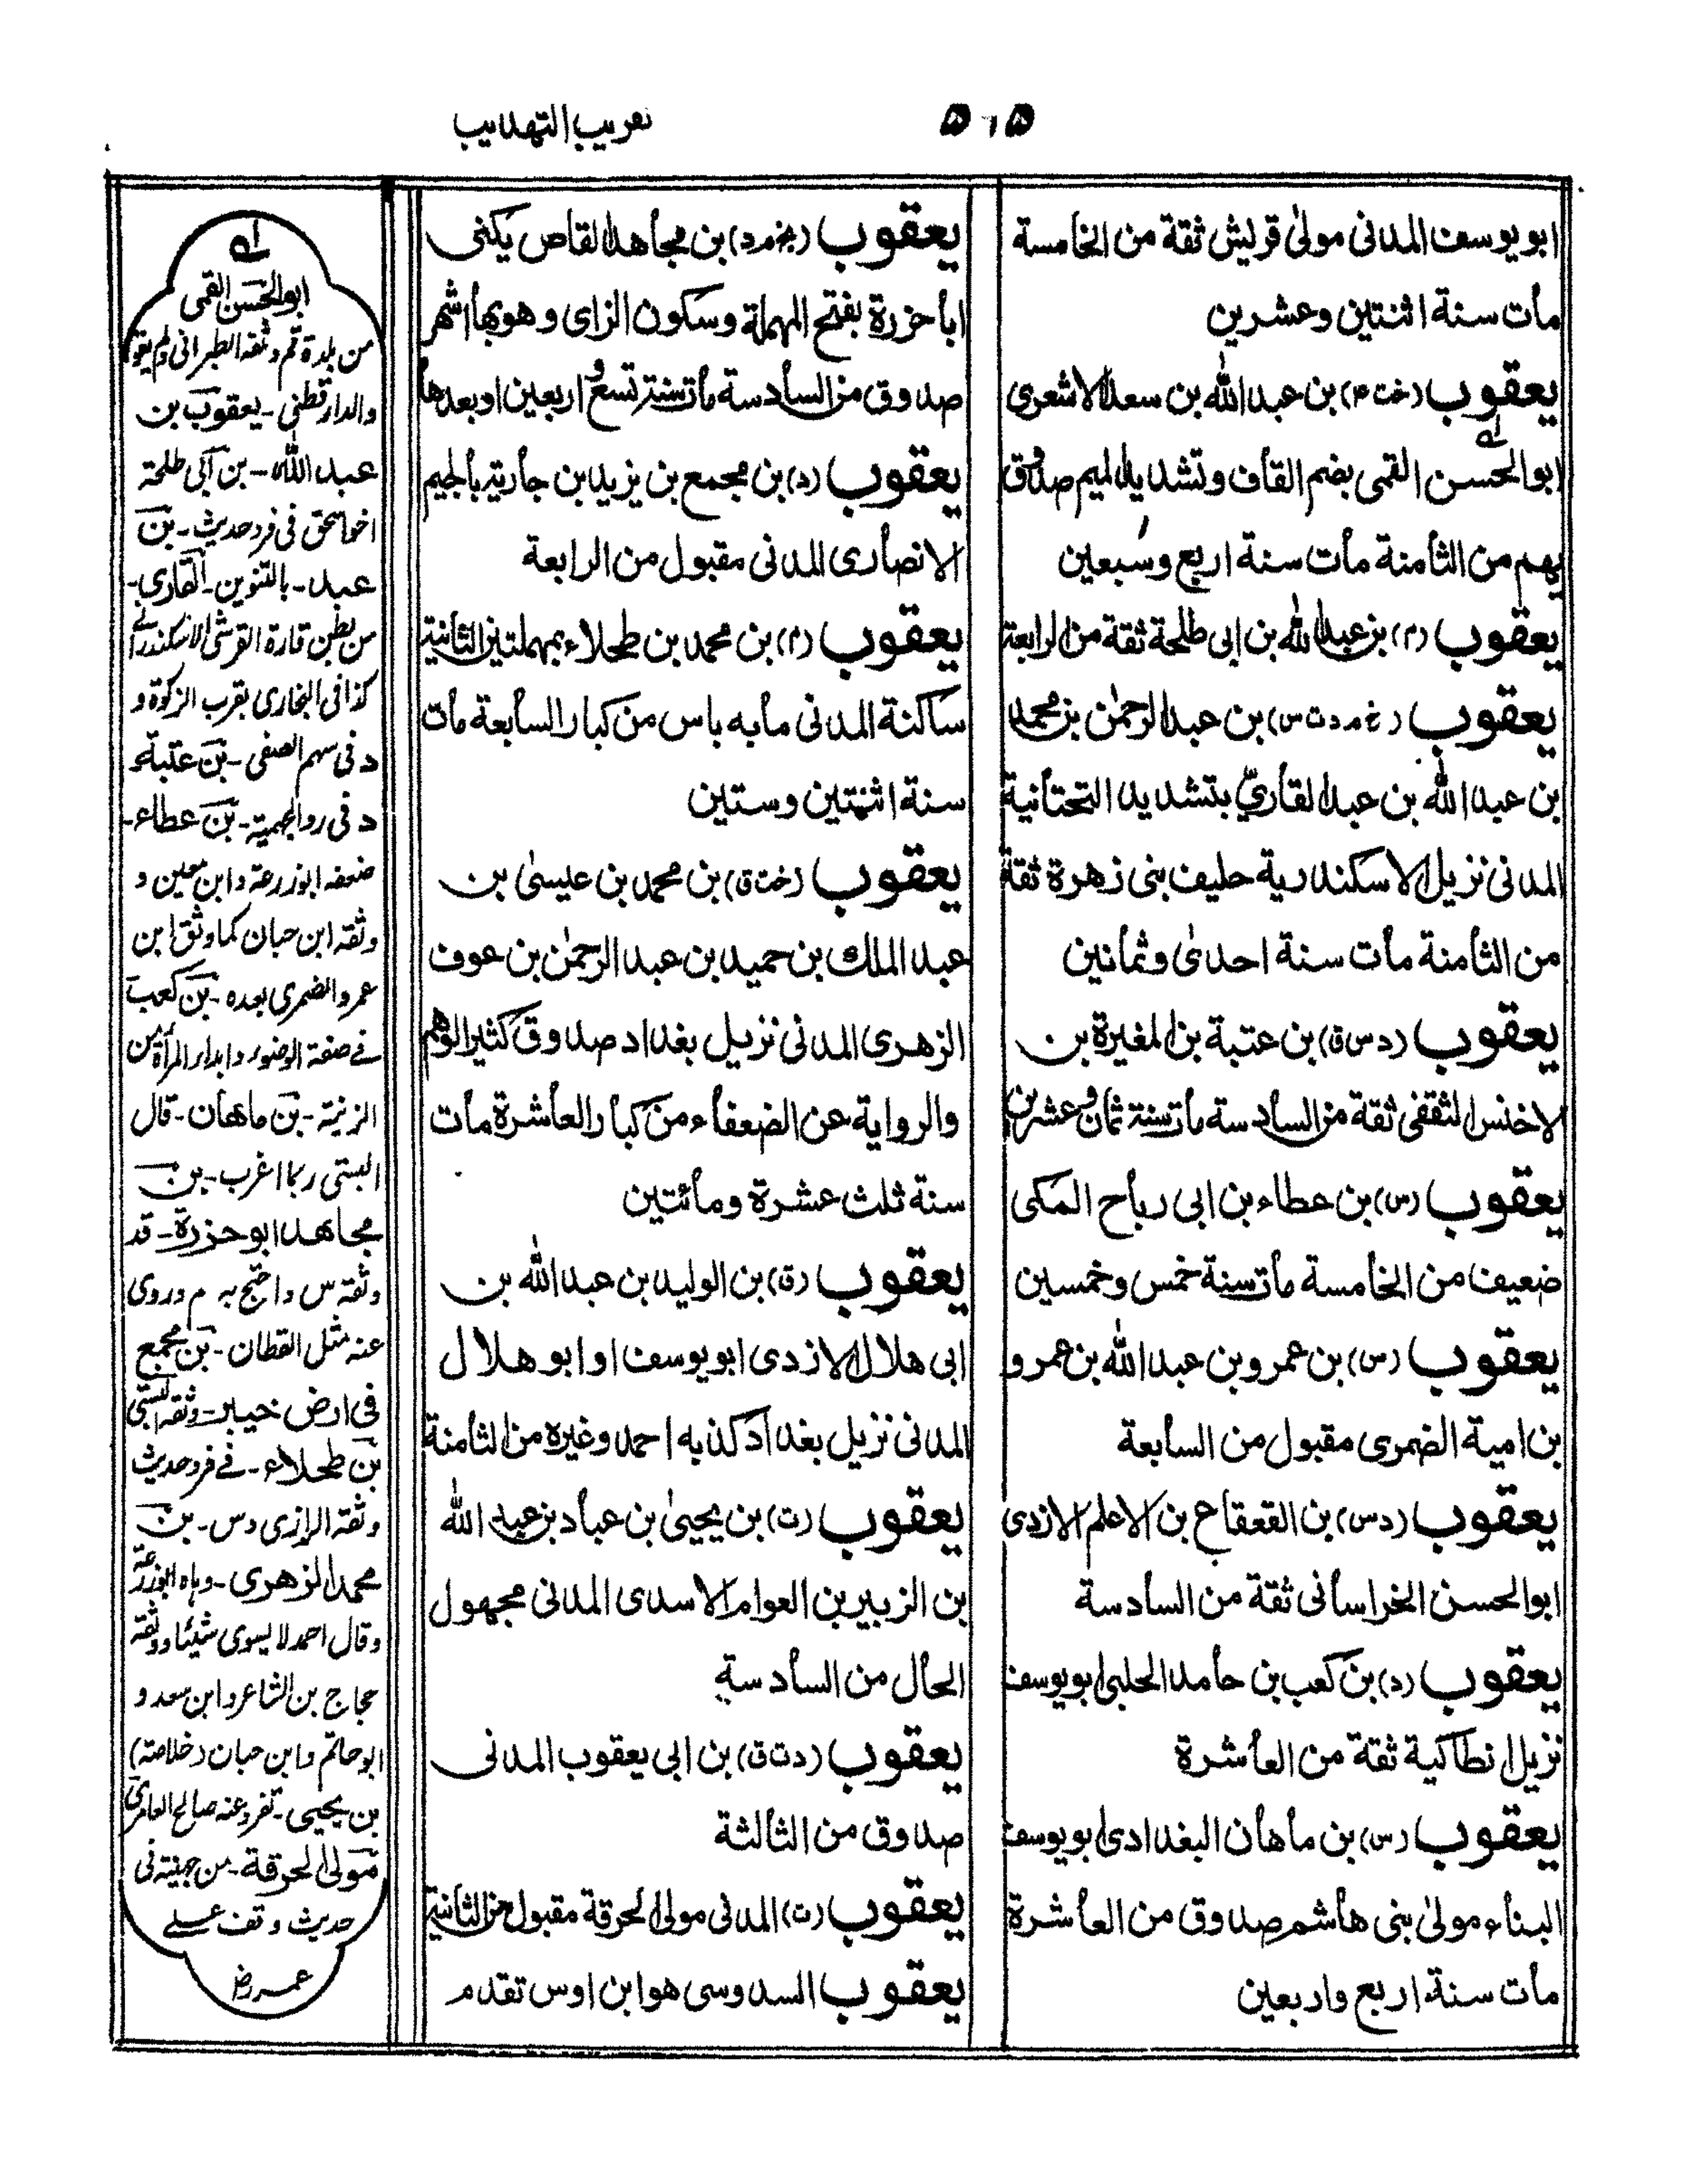 تقريب التهذيب
٥٦٥
ابو يوسف المدنى مولىٰ قريش ثقة من الخامسة
مات سنة اثنتين وعشرين
يعقوب (خت ۴) بن عبدالله بن سعد الاشعرى
ابوالحسن القمى بضم القاف وتشديد الميم صدوق
يهم من الثامنة مات سنة اربع وسبعين
يعقوب (م) بن عبدالله بن ابى طلحة ثقة من الرابعة
يعقوب (خ م د ت س) بن عبدالرحمٰن بن محمد
بن عبدالله بن عبد القارىّ بتشديد التحتانية
المدنى نزيل الاسكندرية حليف بنى زهرة ثقة
من الثامنة مات سنة احدىٰ وثمانين
يعقوب (د س ق) بن عتبة بن المغيرة بن
الاخنس الثقفى ثقة من السادسة مات سنة ثمان وعشرين
يعقوب (س) بن عطاء بن ابى رباح المكى
ضعيف من الخامسة مات سنة خمس وخمسين
يعقوب (س) بن عمرو بن عبدالله بن عمرو
بن امية الضمرى مقبول من السابعة
يعقوب (د س) بن القعقاع بن الاعلم الازدى
ابوالحسن الخراسانى ثقة من السادسة
يعقوب (د) بن كعب بن حامد الحلبى ابو يوسف
نزيل انطاكية ثقة من العاشرة
يعقوب (س) بن ماهان البغدادى ابو يوسف
البناء مولىٰ بنى هاشم صدوق من العاشرة
مات سنة اربع واربعين
يعقوب (بخ م د) بن مجاهد القاص يكنى
ابا حزرة بفتح المهملة وسكون الزاى وهو بها اشهر
صدوق من السادسة مات سنة تسع واربعين او بعدها
يعقوب (د) بن مجمع بن يزيد بن جارية بالجيم
الانصارى المدنى مقبول من الرابعة
يعقوب (م) بن محمد بن طحلاء بمهملتين الثانية
ساكنة المدنى مابه باس من كبار السابعة مات
سنة اثنتين وستين
يعقوب (خت ق) بن محمد بن عيسىٰ بن
عبد الملك بن حميد بن عبد الرحمٰن بن عوف
الزهرى المدنى نزيل بغداد صدوق كثير الوهم
والرواية عن الضعفاء من كبار العاشرة مات
سنة ثلث عشرة ومائتين
يعقوب (ق) بن الوليد بن عبدالله بن
ابى هلال الازدى ابو يوسف او ابو هلال
المدنى نزيل بغداد كذبه احمد وغيره من الثامنة
يعقوب (ت) بن يحيىٰ بن عباد بن عبد الله
بن الزبير بن العوام الاسدى المدنى مجهول
الحال من السادسة
يعقوب (د ت ق) بن ابى يعقوب المدنى
صدوق من الثالثة
يعقوب (ت) المدنى مولى الحرقة مقبول من الثانية
يعقوب السدوسى هو ابن اوس تقدم
لـه
ابوالحسن القمى
من بلدة قم وثقه الطبرانى ولم يقوه
والدارقطنى - يعقوب بن
عبد الله - بن ابى طلحة
اخو اسحق فى فرد حديث - بن
عبد - بالتنوين - القارى -
من بطن قارة القرشى الاسكندرانى
كذا فى البخارى بقرب الزكوة و
د فى سهم الصفى - بن عتبة
د فى رد الجهمية - بن عطاء -
ضعفه ابوزرعة وابن معين و
وثقه ابن حبان كما وثق ابن
عمرو الضمرى بعده - بن كعب
فى صفة الوضوء وابداء المرأة من
الزينة - بن ماهان - قال
البستى ربما اغرب - بن
مجاهد ابو حزرة - قد
وثقه س واحتج به م وروى
عنه مثل القطان - بن مجمع
فى ارض خيبر - وثقه البستى
بن طحلاء - فى فرد حديث
وثقه الرازى وس - بن
محمد الزهرى - وهاه ابوزرعة
وقال احمد لا يسوى شيئا ووثقه
حجاج بن الشاعر وابن سعد و
ابو حاتم وابن حبان (خلاصة)
بن يحيى - تفرد عنه صالح العامرى
مولى الحرقة - من جهينة فى
حديث وقف على
عمر رض